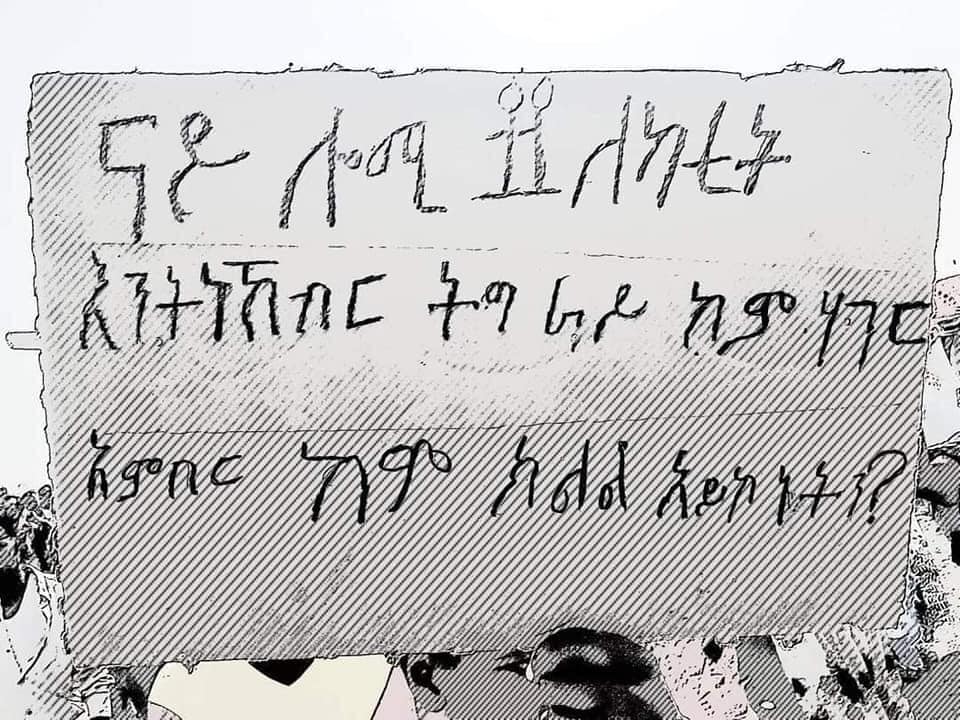 ናይ ሎሚ ለካቲት
እንትነኽብር ትግራይ ከም ሃገር
እምበር ከም ክልል አይኮነትን?